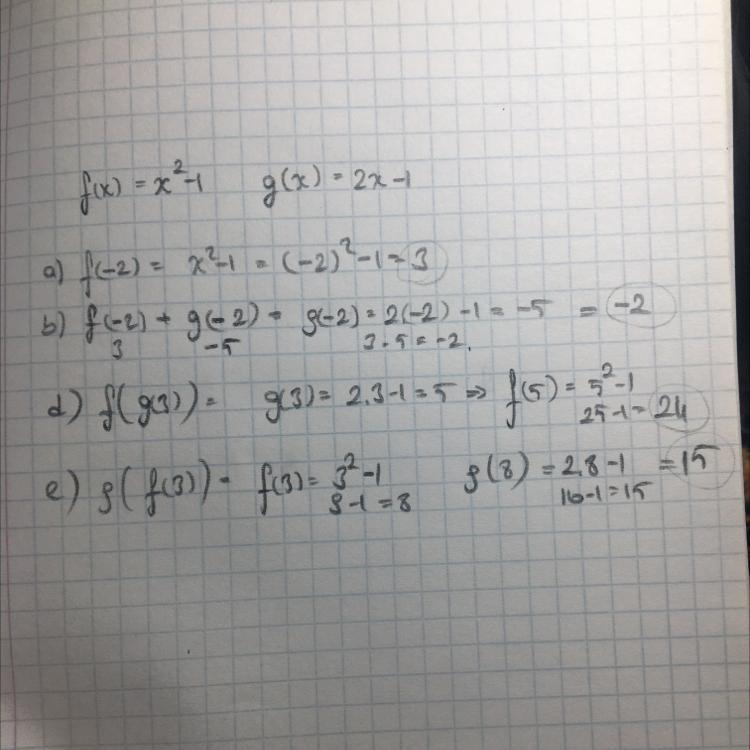 f(x) = x²-1 g(x) = 2x-1
a) f(-2) = x²-1 = (-2)²-1 = 3
b) f(-2) + g(-2) = g(-2) = 2(-2)-1 = -5 = -2
3 -5 3-5 = -2.
d) f(g(3)) = g(3) = 2.3-1 = 5 => f(5) = 5²-1
25-1 = 24
e) g(f(3)) = f(3) = 3²-1 g(8) = 2.8-1 = 15
9-1 = 8 16-1 = 15